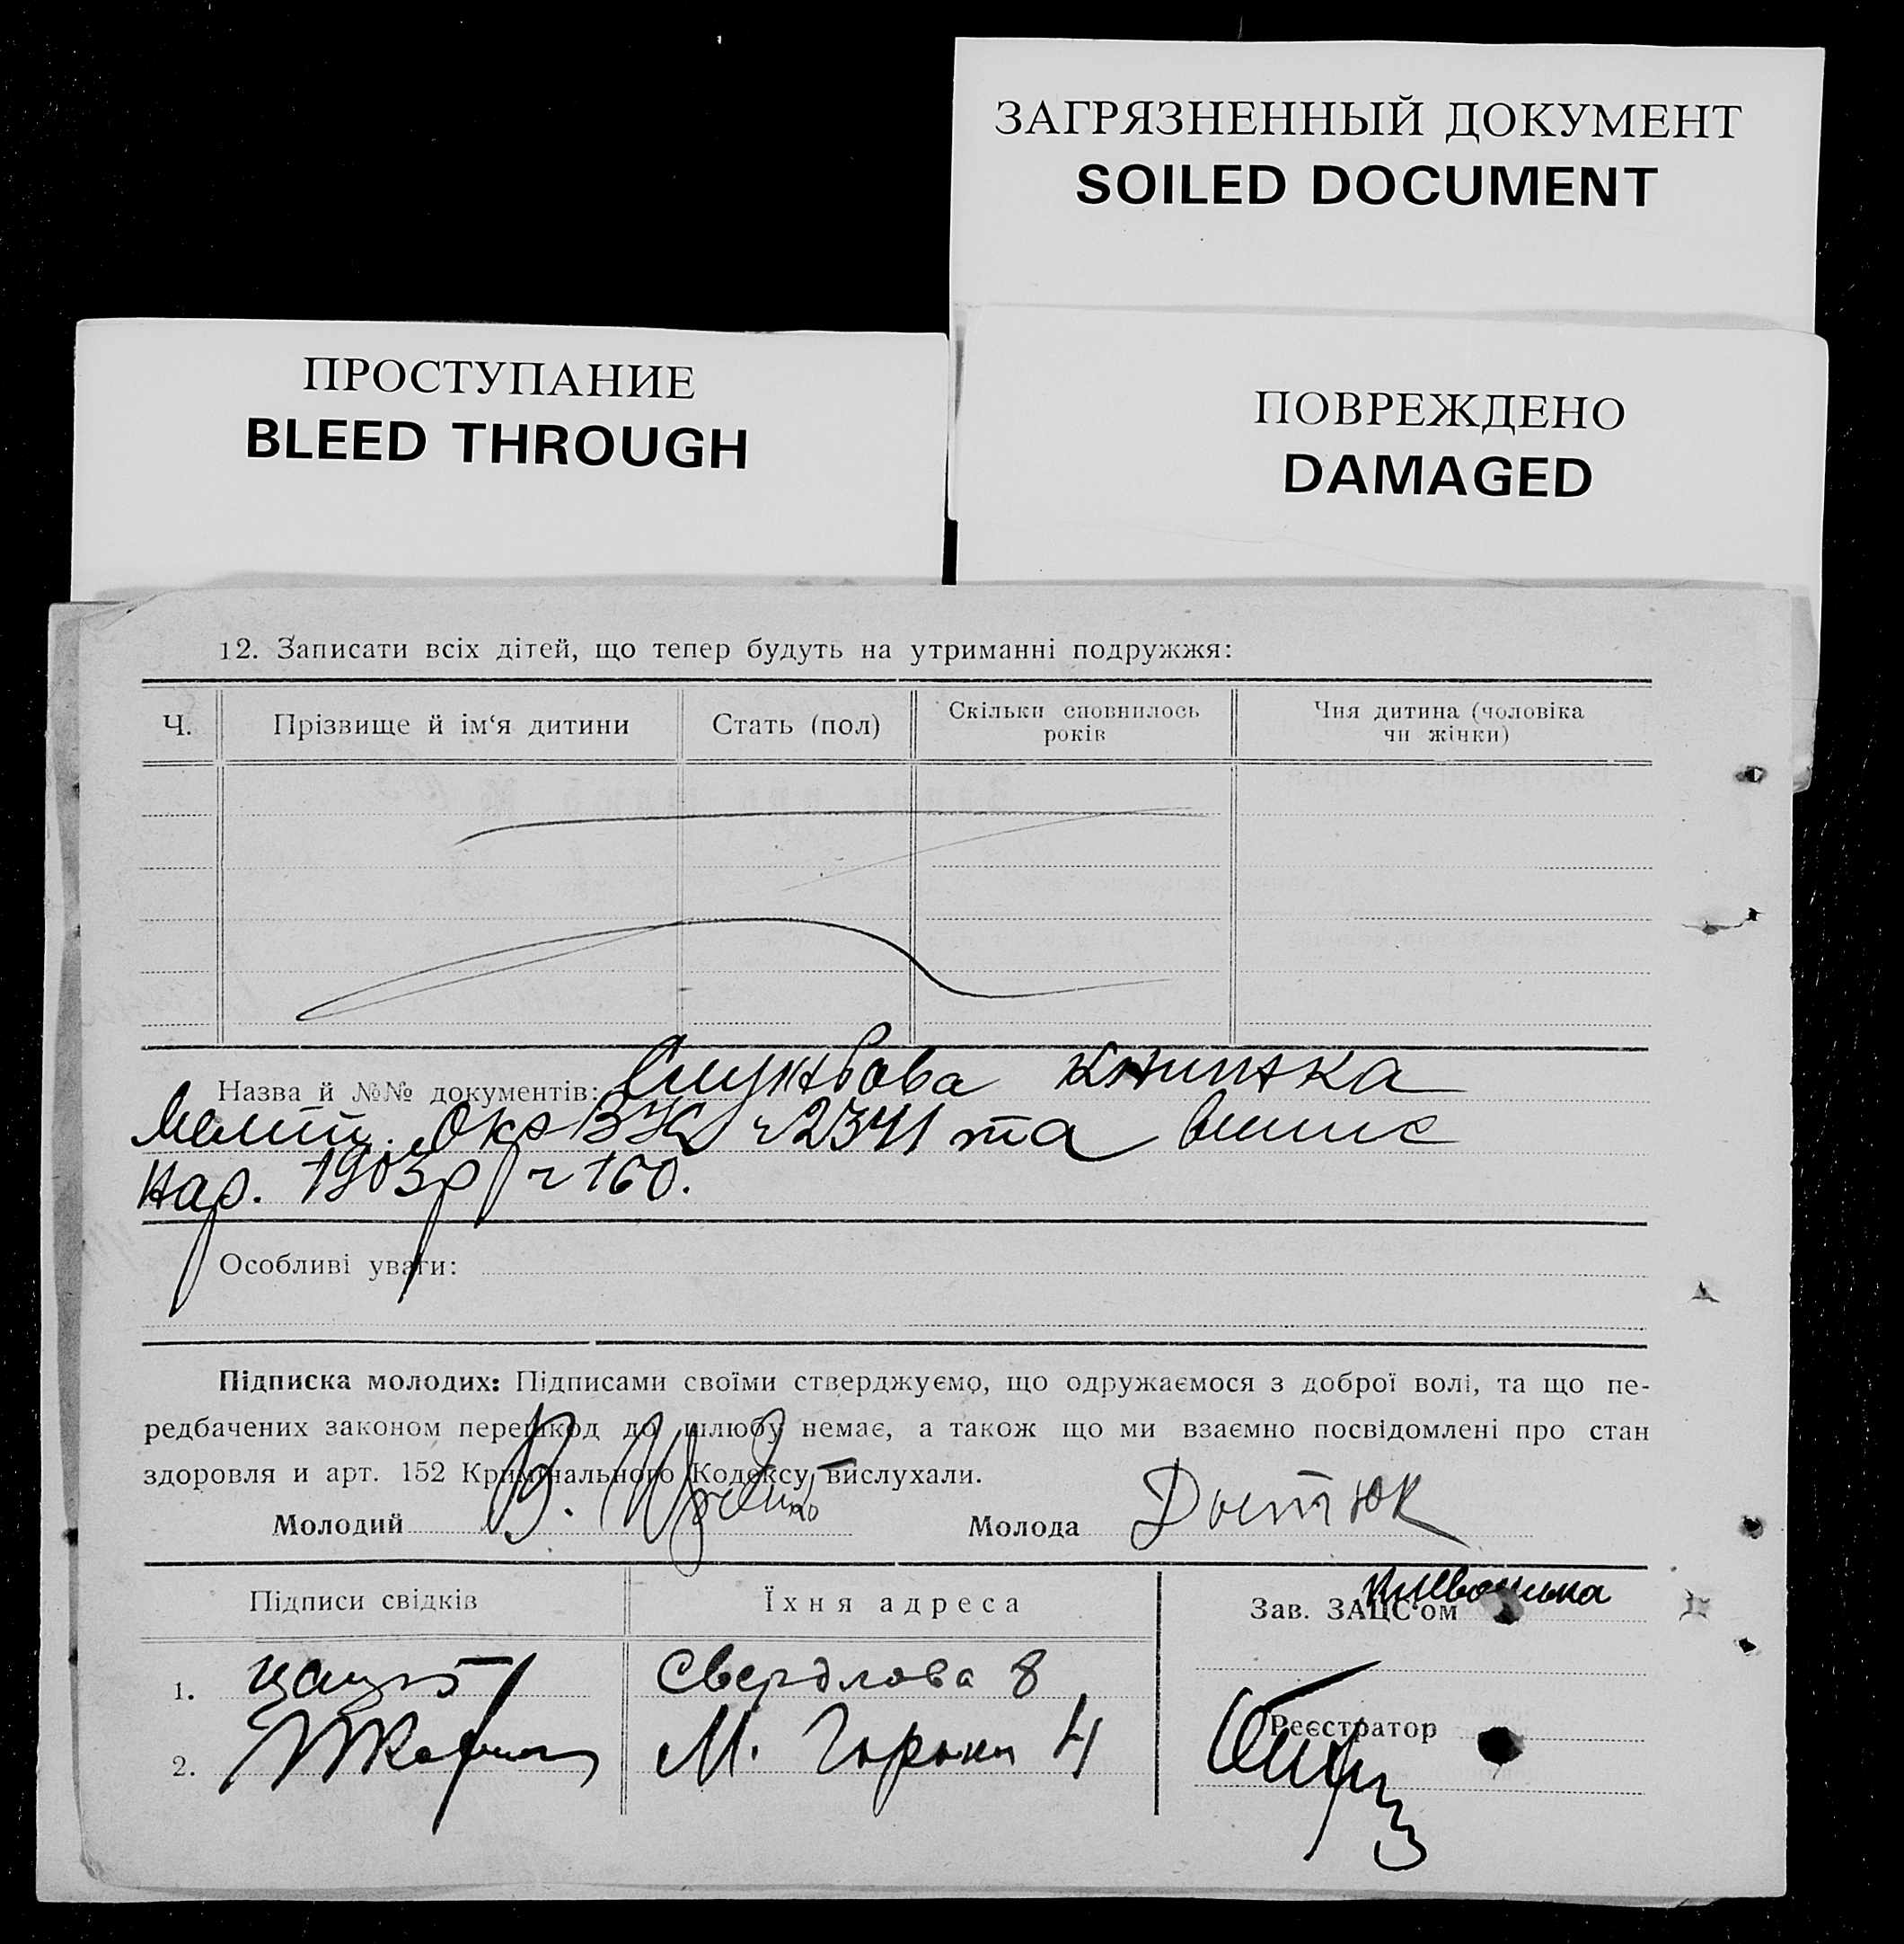 ЗАГРЯЗНЕННЫЙ ДОКУМЕНТ
SOILED DOCUMENT
ПРОСТУПАНИЕ
BLEED THROUGH
ПОВРЕЖДЕНО
DAMAGED
12. Записати всіх дітей, що тепер будуть на утриманні подружжя:
Ч.
Прізвище й ім‘я дитини
Стать (пол)
Скільки сповнилось
років
Чия дитина (чоловіка
чи жінки)
Назва й №№ документів: Службова книжка
Окр ч 2341 та випис
нар. 1903р ч 160.
Особливі уваги:
Підписка молодих: Підписами своїми стверджуємо, що одружаємося з доброї волі, та що пе-
редбачених законом перешкод до шлюбу немає, а також що ми взаємно посвідомлені про стан
здоровля и арт. 152 Кримінального Кодексу вислухали.
Молодий В.
Молода
Підписи свідків
Їхня адреса
Зав. ЗАЦС'ом
1. Свердлова 8
2. М. Горьки 4
Реєстратор